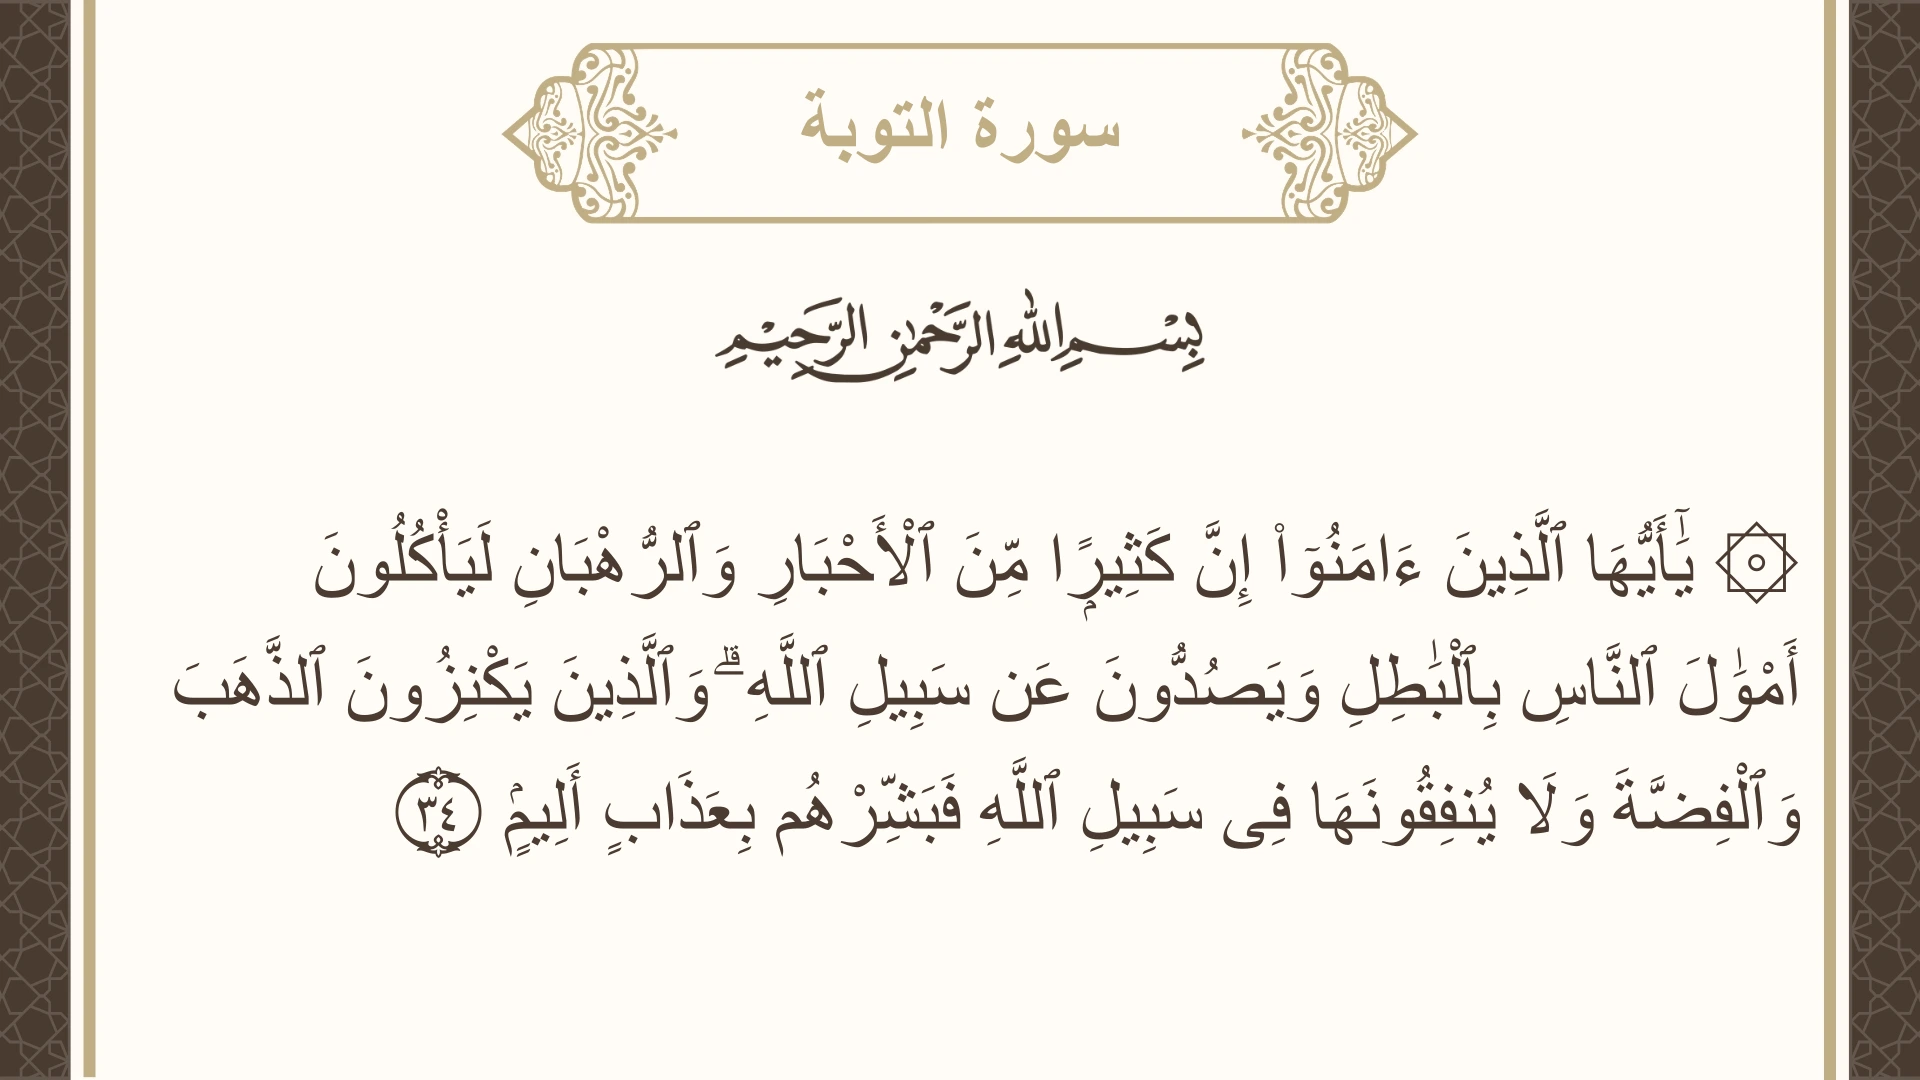 سورة التوبة
بِسْمِ اللهِ الرَّحْمٰنِ الرَّحِيْمِ
۞ يَـٰٓأَيُّهَا ٱلَّذِينَ ءَامَنُوٓا۟ إِنَّ كَثِيرًۭا مِّنَ ٱلْأَحْبَارِ وَٱلرُّهْبَانِ لَيَأْكُلُونَ
أَمْوَٰلَ ٱلنَّاسِ بِٱلْبَـٰطِلِ وَيَصُدُّونَ عَن سَبِيلِ ٱللَّهِ ۗ وَٱلَّذِينَ يَكْنِزُونَ ٱلذَّهَبَ
وَٱلْفِضَّةَ وَلَا يُنفِقُونَهَا فِى سَبِيلِ ٱللَّهِ فَبَشِّرْهُم بِعَذَابٍ أَلِيمٍۢ ٣٤